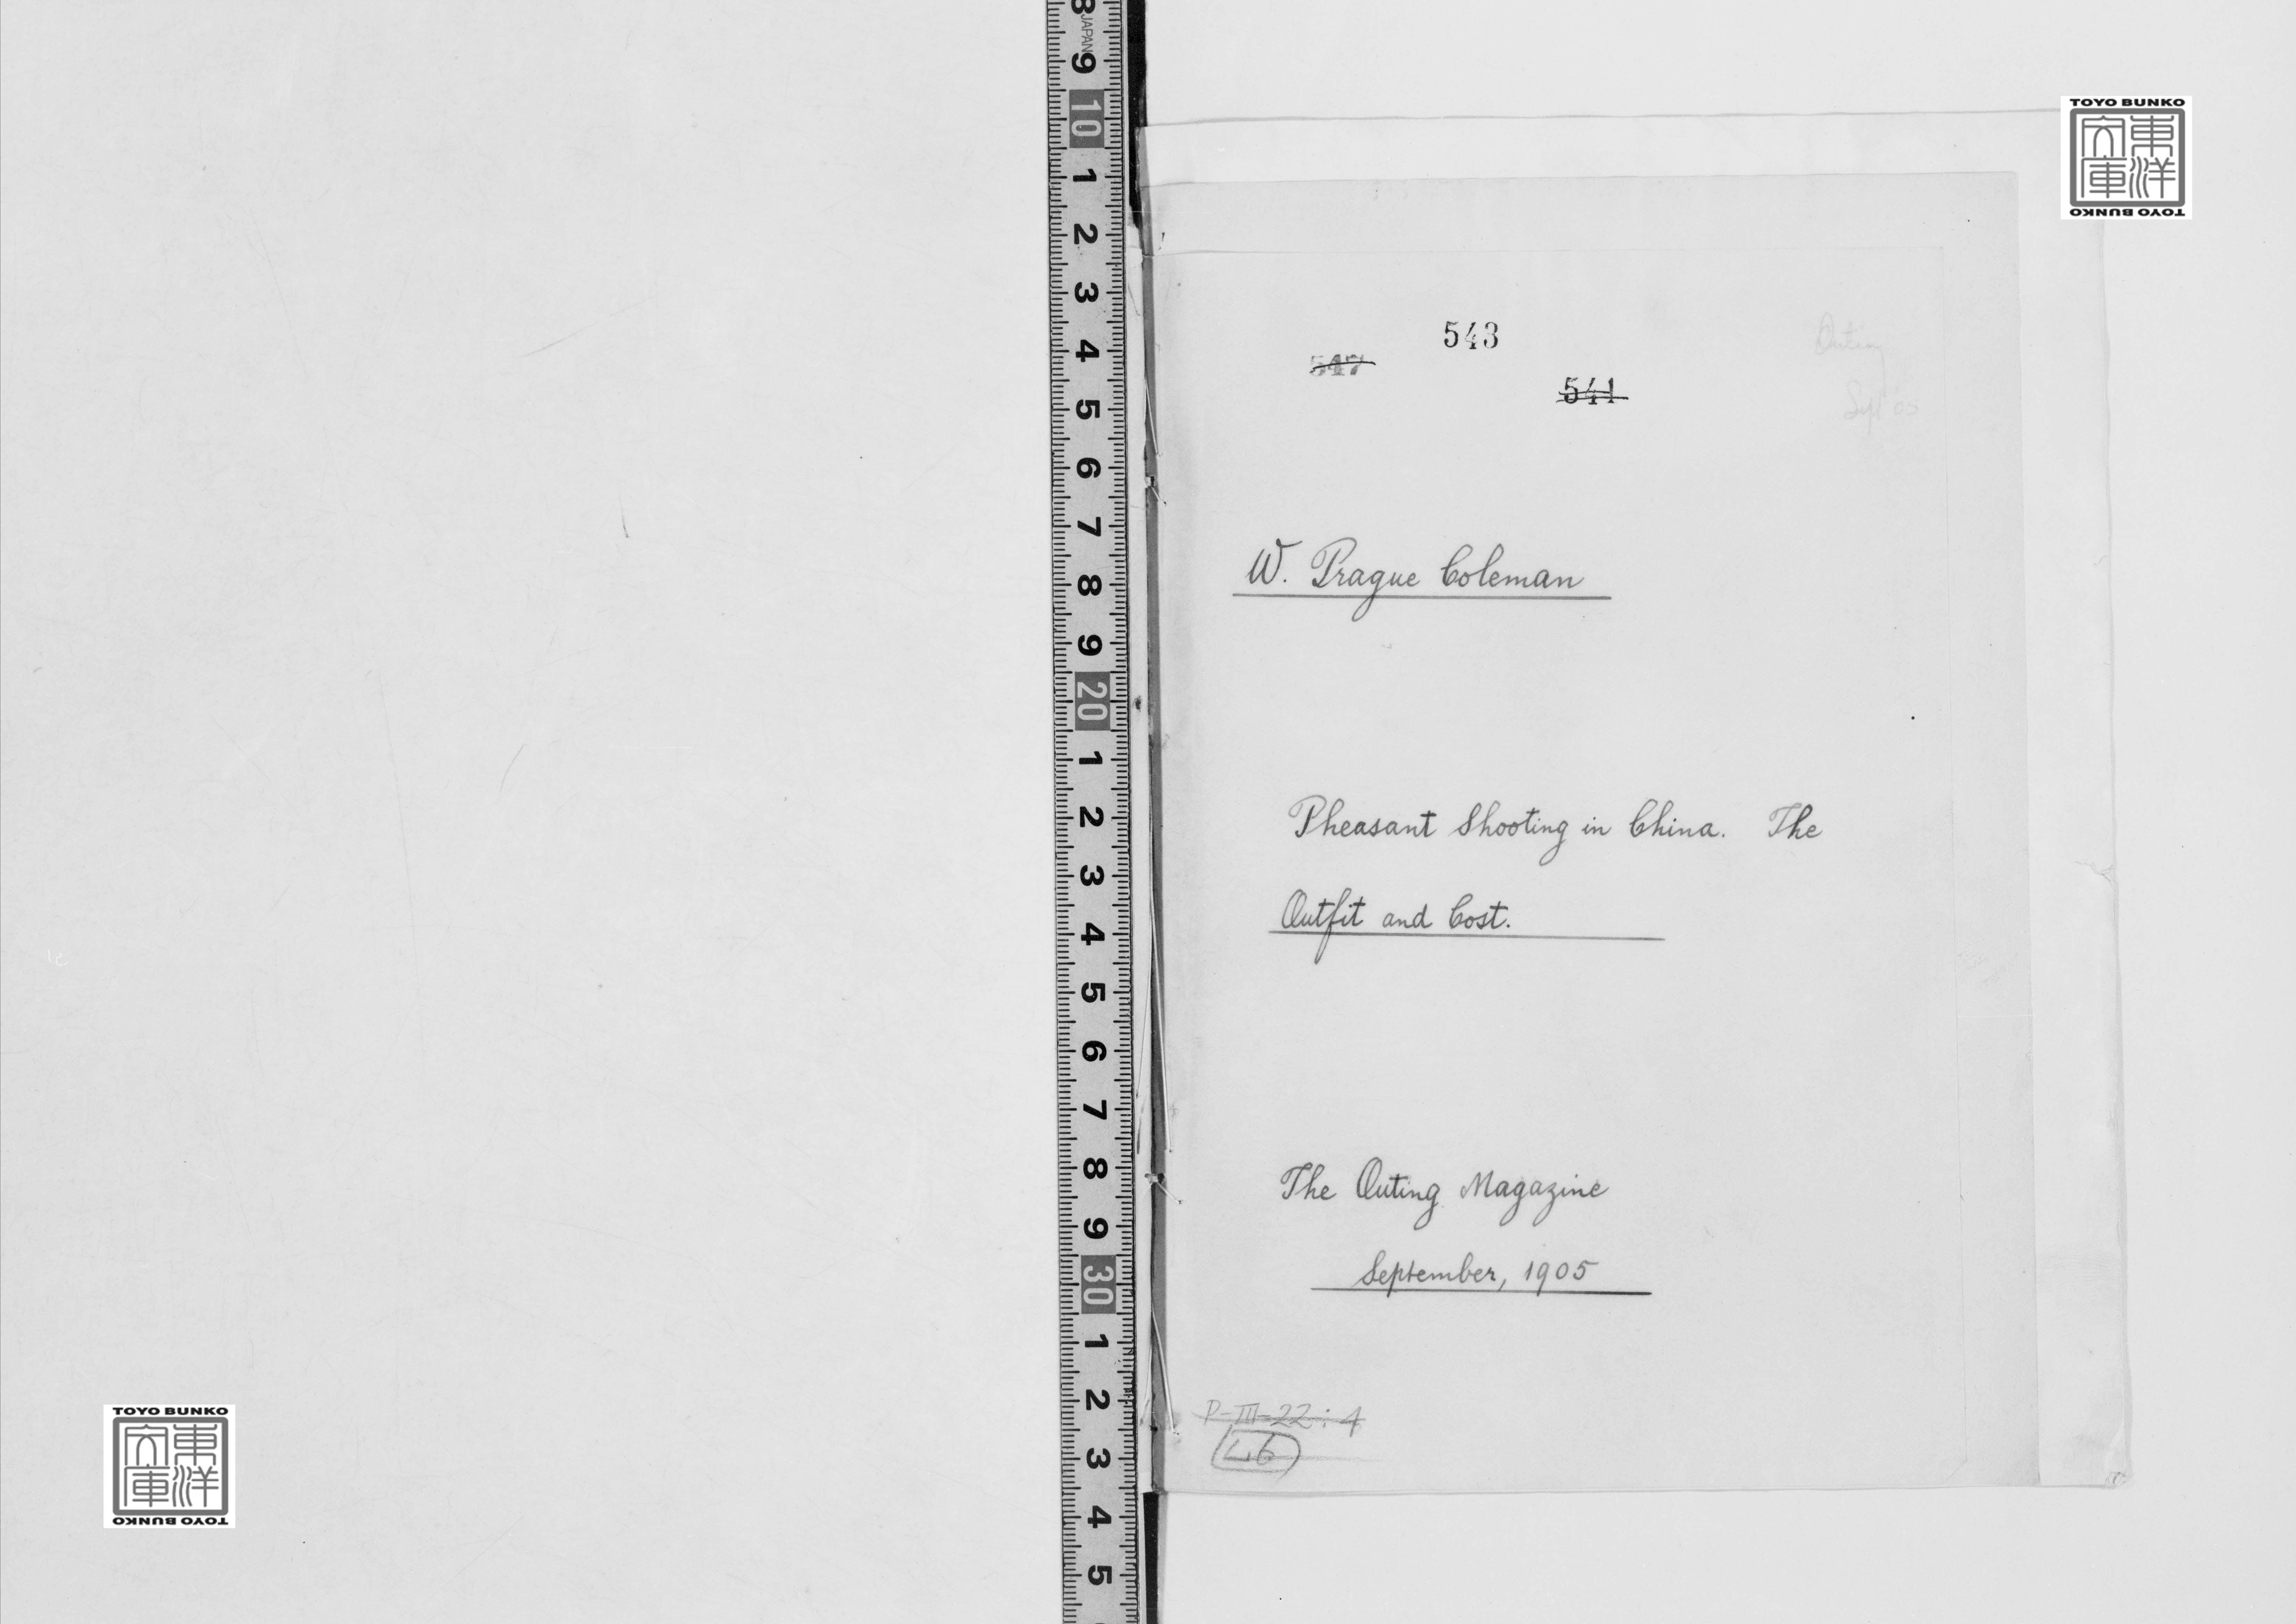 TOYO BUNKO
東洋文庫
TOYO BUNKO
543
547
541
Outing
Sept 05
W. Prague Coleman
Pheasant Shooting in China. The
Outfit and Cost.
The Outing Magazine
September, 1905
P-III-22:4
46
JAPAN
8 9 10 1 2 3 4 5 6 7 8 9 20 1 2 3 4 5 6 7 8 9 30 1 2 3 4 5
TOYO BUNKO
東洋文庫
TOYO BUNKO